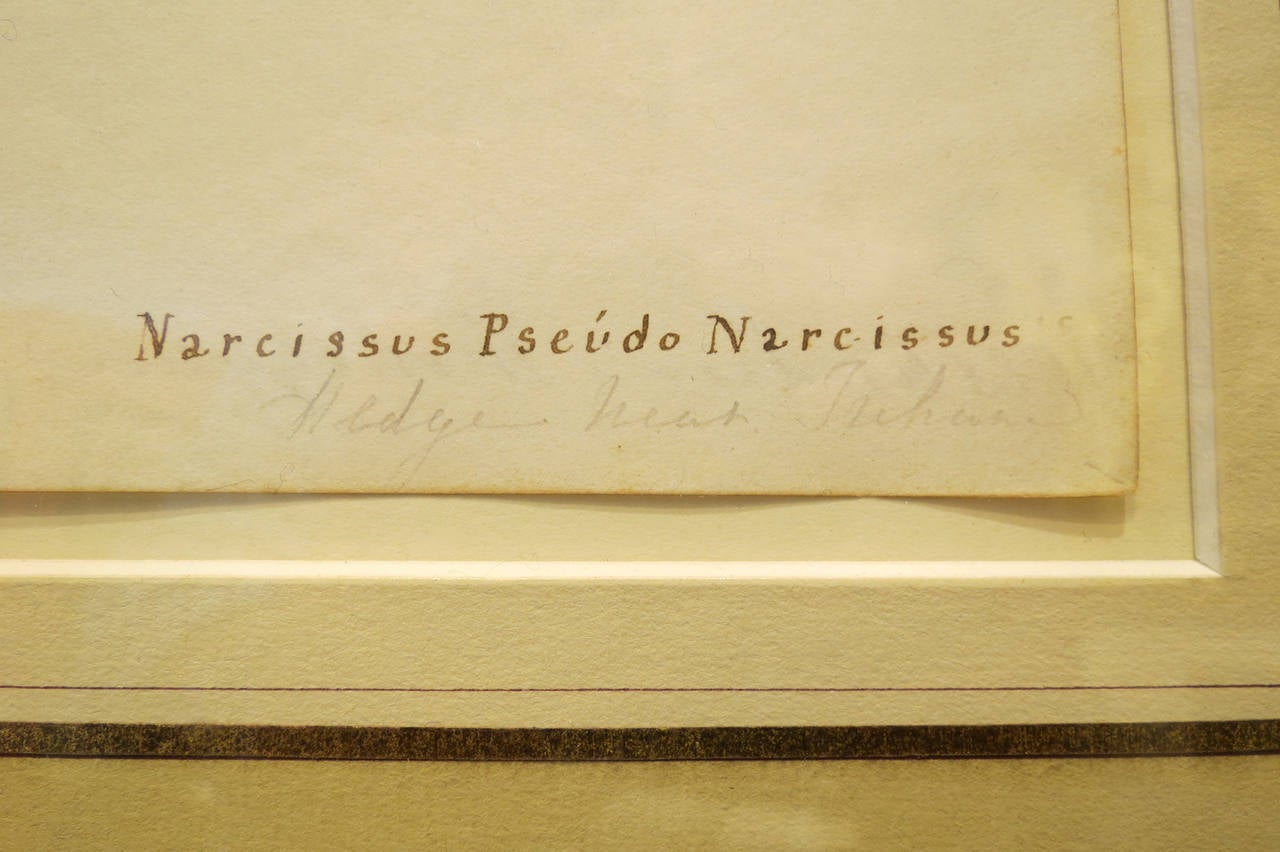 Narcissus Pseúdo Narcissus
Hedge near